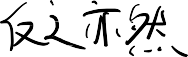 反之亦然